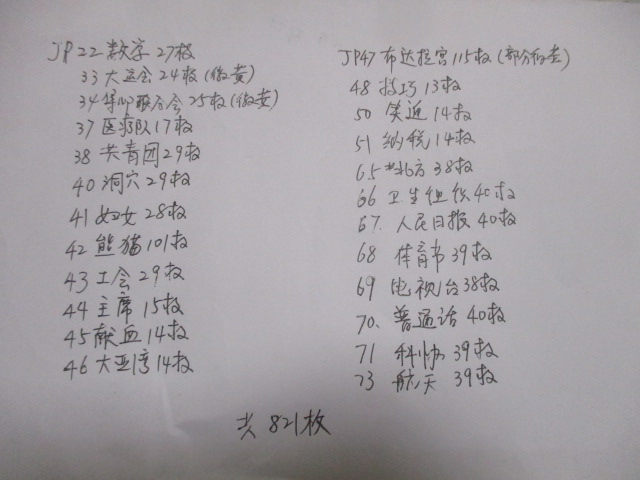 JP22 数学 27枚
33 大运会 24枚(微黄)
34 绿心联合会 25枚(微黄)
37 医疗队 17枚
38 共青团 29枚
40 洞穴 29枚
41 妇女 28枚
42 熊猫 101枚
43 工会 29枚
44 主席 15枚
45 献血 14枚
46 大亚湾 14枚
JP47 布达拉宫 115枚(部分微黄)
48 技巧 13枚
50 笑近 14枚
51 纳税 14枚
65 北方 38枚
66 卫生组织 40枚
67. 人民日报 40枚
68 体育书 39枚
69 电视台 38枚
70. 普通话 40枚
71 科协 39枚
73 航天 39枚
共 821枚